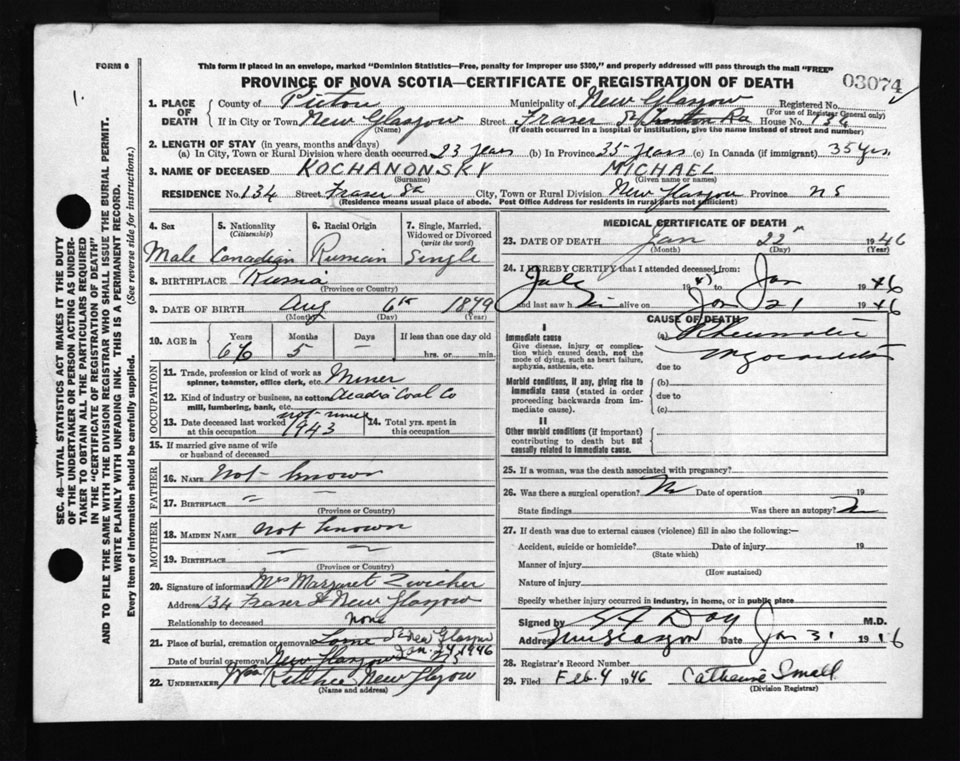 FORM 6
This form if placed in an envelope, marked "Dominion Statistics—Free, penalty for improper use $300," and properly addressed will pass through the mail "FREE"
1.
PROVINCE OF NOVA SCOTIA—CERTIFICATE OF REGISTRATION OF DEATH
03074
1. PLACE OF DEATH County of Pictou Municipality of New Glasgow Registered No.
(For use of Registrar General only)
If in City or Town New Glasgow Street Fraser St House No. 134
(Name) (If death occurred in a hospital or institution, give the name instead of street and number)
2. LENGTH OF STAY (in years, months and days)
(a) In City, Town or Rural Division where death occurred 23 years (b) In Province 35 years (c) In Canada (if immigrant) 35 yrs
3. NAME OF DECEASED KOCHANONSKY MICHAEL
(Surname) (Given name or names)
RESIDENCE No. 134 Street Fraser St City, Town or Rural Division New Glasgow Province NS
(Residence means usual place of abode. Post Office Address for residents in rural parts not sufficient)
SEC. 46—VITAL STATISTICS ACT MAKES IT THE DUTY
OF THE UNDERTAKER OR PERSON ACTING AS UNDER-
TAKER TO OBTAIN ALL THE PARTICULARS REQUIRED
IN THE "CERTIFICATE OF REGISTRATION OF DEATH"
AND TO FILE THE SAME WITH THE DIVISION REGISTRAR WHO SHALL ISSUE THE BURIAL PERMIT.
WRITE PLAINLY WITH UNFADING INK. THIS IS A PERMANENT RECORD.
Every item of information should be carefully supplied. (See reverse side for instructions.)
4. Sex 5. Nationality (Citizenship) 6. Racial Origin 7. Single, Married, Widowed or Divorced (write the word)
Male Canadian Russian Single
8. BIRTHPLACE Russia
(Province or Country)
9. DATE OF BIRTH Aug 6th 1879
(Month) (Day) (Year)
10. AGE in Years Months Days If less than one day old
66 5 — hrs. or min.
OCCUPATION
11. Trade, profession or kind of work as spinner, teamster, office clerk, etc. Miner
12. Kind of industry or business, as cotton mill, lumbering, bank, etc. Acadia Coal Co
13. Date deceased last worked at this occupation 1943 14. Total yrs. spent in this occupation
15. If married give name of wife or husband of deceased
FATHER
16. NAME Not known
17. BIRTHPLACE — —
(Province or Country)
MOTHER
18. MAIDEN NAME Not known
19. BIRTHPLACE — —
(Province or Country)
20. Signature of informant Mrs Margaret Zwicker
Address 134 Fraser St New Glasgow
Relationship to deceased none
21. Place of burial, cremation or removal Lorne St New Glasgow
Date of burial or removal New Glasgow Jan. 24 1946 NS
22. UNDERTAKER Wm Ritchie New Glasgow
(Name and address)
MEDICAL CERTIFICATE OF DEATH
23. DATE OF DEATH Jan 22 1946
(Month) (Day)
24. I HEREBY CERTIFY that I attended deceased from:
July 1945 to Jan 1946
and last saw him alive on Jan 21 1946
CAUSE OF DEATH
I
Immediate cause (a) Rheumatic
Give disease, injury or complication which caused death, not the mode of dying, such as heart failure, asphyxia, asthenia, etc.
Myocarditis
due to
Morbid conditions, if any, giving rise to immediate cause (stated in order proceeding backwards from immediate cause).
(b)
due to
(c)
II
Other morbid conditions (if important) contributing to death but not causally related to immediate cause.
25. If a woman, was the death associated with pregnancy?
26. Was there a surgical operation? No Date of operation 19
State findings Was there an autopsy? No
27. If death was due to external causes (violence) fill in also the following:—
Accident, suicide or homicide? Date of injury 19
(State which)
Manner of injury
(How sustained)
Nature of injury
Specify whether injury occurred in industry, in home, or in public place
Signed by Day M.D.
Address New Glasgow Date Jan 31 1946
28. Registrar's Record Number
29. Filed Feb. 4 1946 Catherine Small
(Division Registrar)